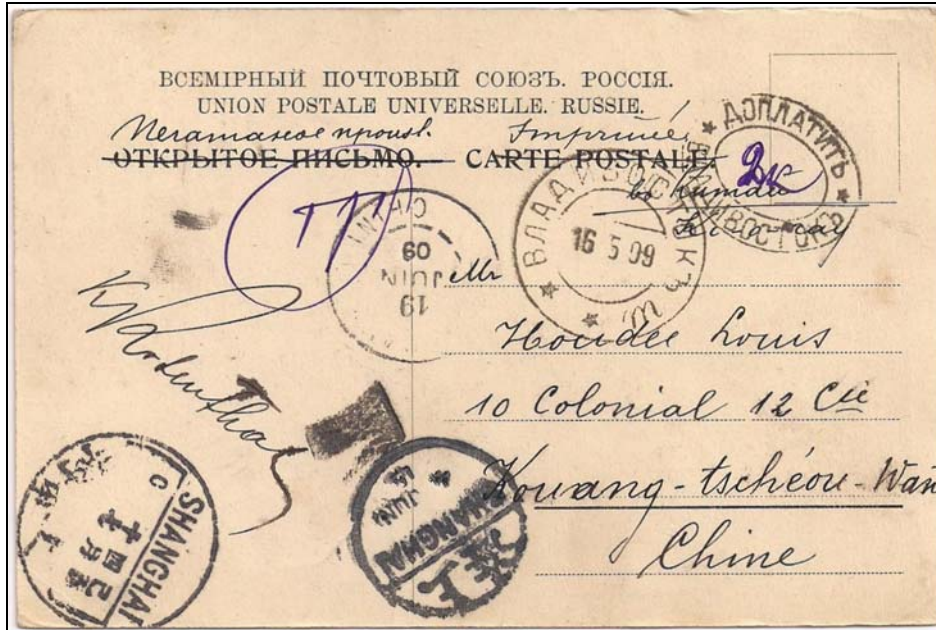 ВСЕМІРНЫЙ ПОЧТОВЫЙ СОЮЗЪ. РОССІЯ.
UNION POSTALE UNIVERSELLE. RUSSIE.
Imprimé
ОТКРЫТОЕ ПИСЬМО. CARTE POSTALE.
ДОПЛАТИТЬ
ВЛАДИВОСТОКЪ
2к
ВЛАДИВОСТОКЪ
16 5 09
19
JUIN
09
Mr
Houdee Louis
10 Colonial 12 Cie
Kouang-tschéou-Wan
Chine
SHANGHAI
C
SHANGHAI
JUIN
上海